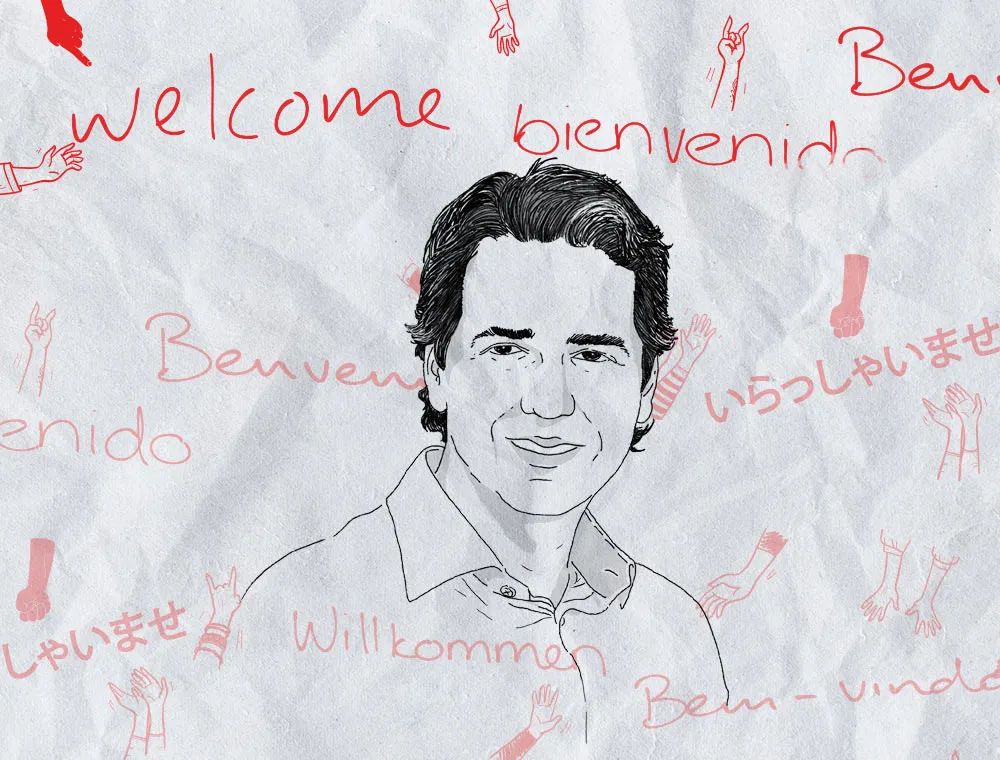 welcome
Ben
bienvenido
いらっしゃいませ
Benven
enido
しゃいませ
Willkommen
Bem-vindo